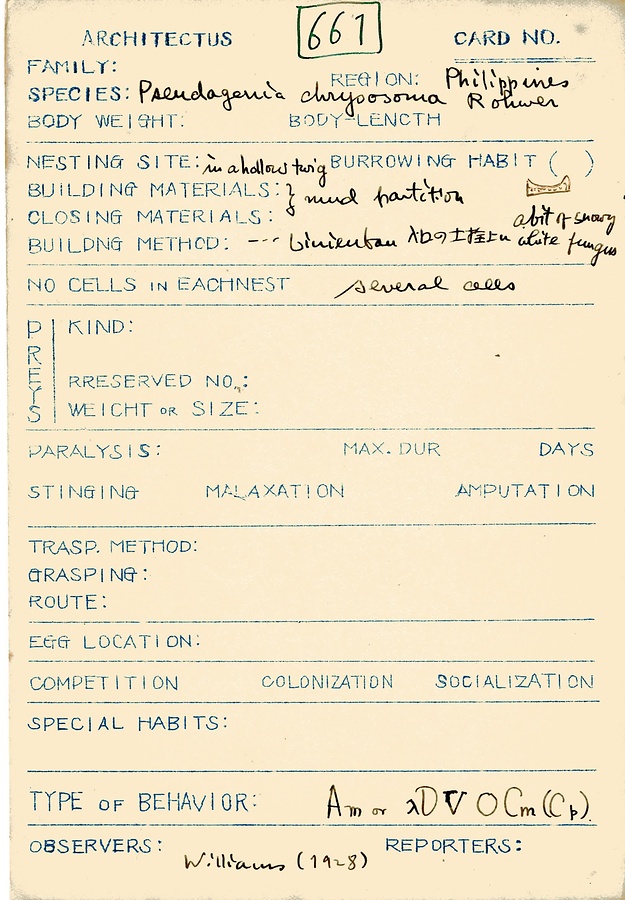 ARCHITECTUS 661 CARD NO.
FAMILY:
REGION: Philippines
SPECIES: Pseudagenia chrysosoma Rohwer
BODY WEIGHT: BODY-LENGTH
NESTING SITE: in a hollow twig BURROWING HABIT ( )
BUILDING MATERIALS: } mud partition
CLOSING MATERIALS:
a bit of snowy
BUILDNG METHOD: --- 入口の土栓上に white fungus
NO CELLS IN EACHNEST several cells
PREYS
KIND:
RRESERVED NO.:
WEIGHT OR SIZE:
PARALYSIS: MAX. DUR DAYS
STINGING MALAXATION AMPUTATION
TRASP. METHOD:
GRASPING:
ROUTE:
EGG LOCATION:
COMPETITION COLONIZATION SOCIALIZATION
SPECIAL HABITS:
TYPE OF BEHAVIOR: Am or λD∇OCm(Cp)
OBSERVERS: Williams (1928) REPORTERS: